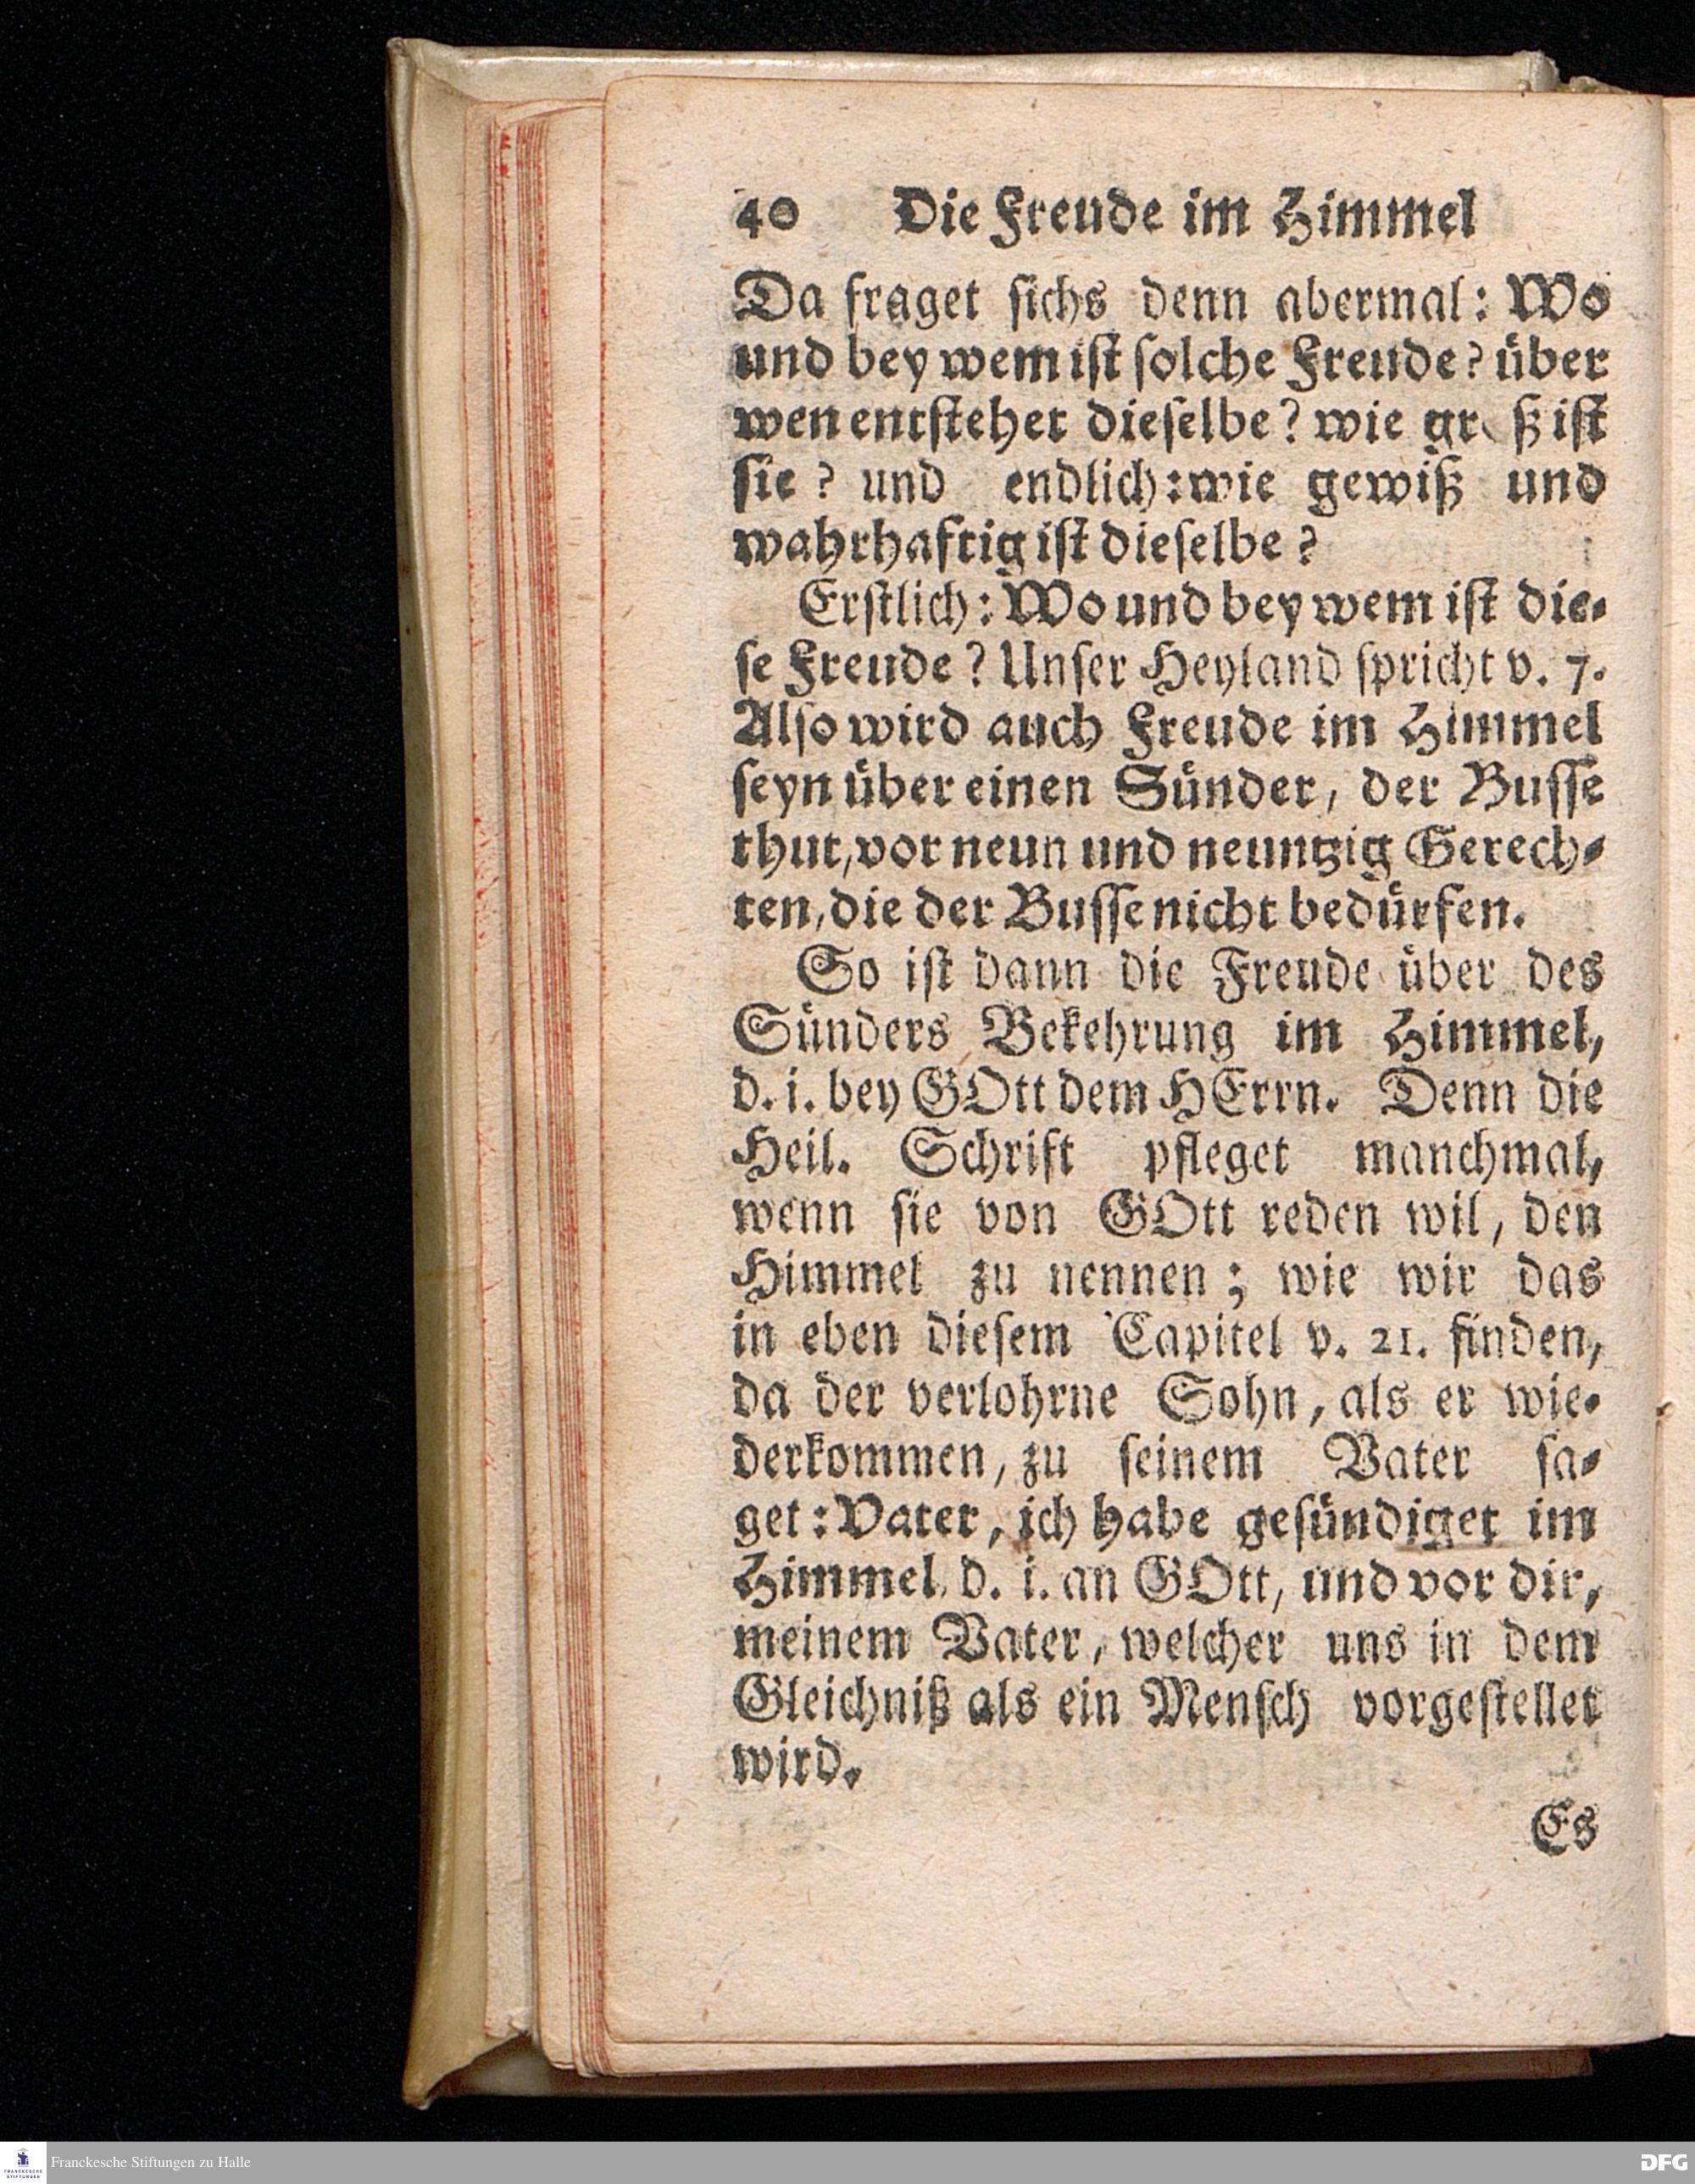 40 Die Freude im Himmel
Da fraget sichs denn abermal: Wo
und bey wem ist solche Freude? über
wen entstehet dieselbe? wie gr ß ist
sie? und endlich: wie gewiß und
wahrhaftig ist dieselbe?
Erstlich: Wo und bey wem ist die-
se Freude? Unser Heyland spricht v. 7.
Also wird auch Freude im Himmel
seyn über einen Sünder, der Busse
thut, vor neun und neuntzig Gerech-
ten, die der Busse nicht bedürfen.
So ist dann die Freude über des
Sünders Bekehrung im Himmel,
d. i. bey GOtt dem HErrn. Denn die
Heil. Schrift pfleget manchmal,
wenn sie von GOtt reden wil, den
Himmel zu nennen; wie wir das
in eben diesem Capitel v. 21. finden,
da der verlohrne Sohn, als er wie-
derkommen, zu seinem Vater sa-
get: Vater, ich habe gesündiget im
Himmel, d. i. an GOtt, und vor dir,
meinem Vater, welcher uns in dem
Gleichniß als ein Mensch vorgestellet
wird.
Es
Franckesche Stiftungen zu Halle
FRANCKESCHE
STIFTUNGEN
DFG